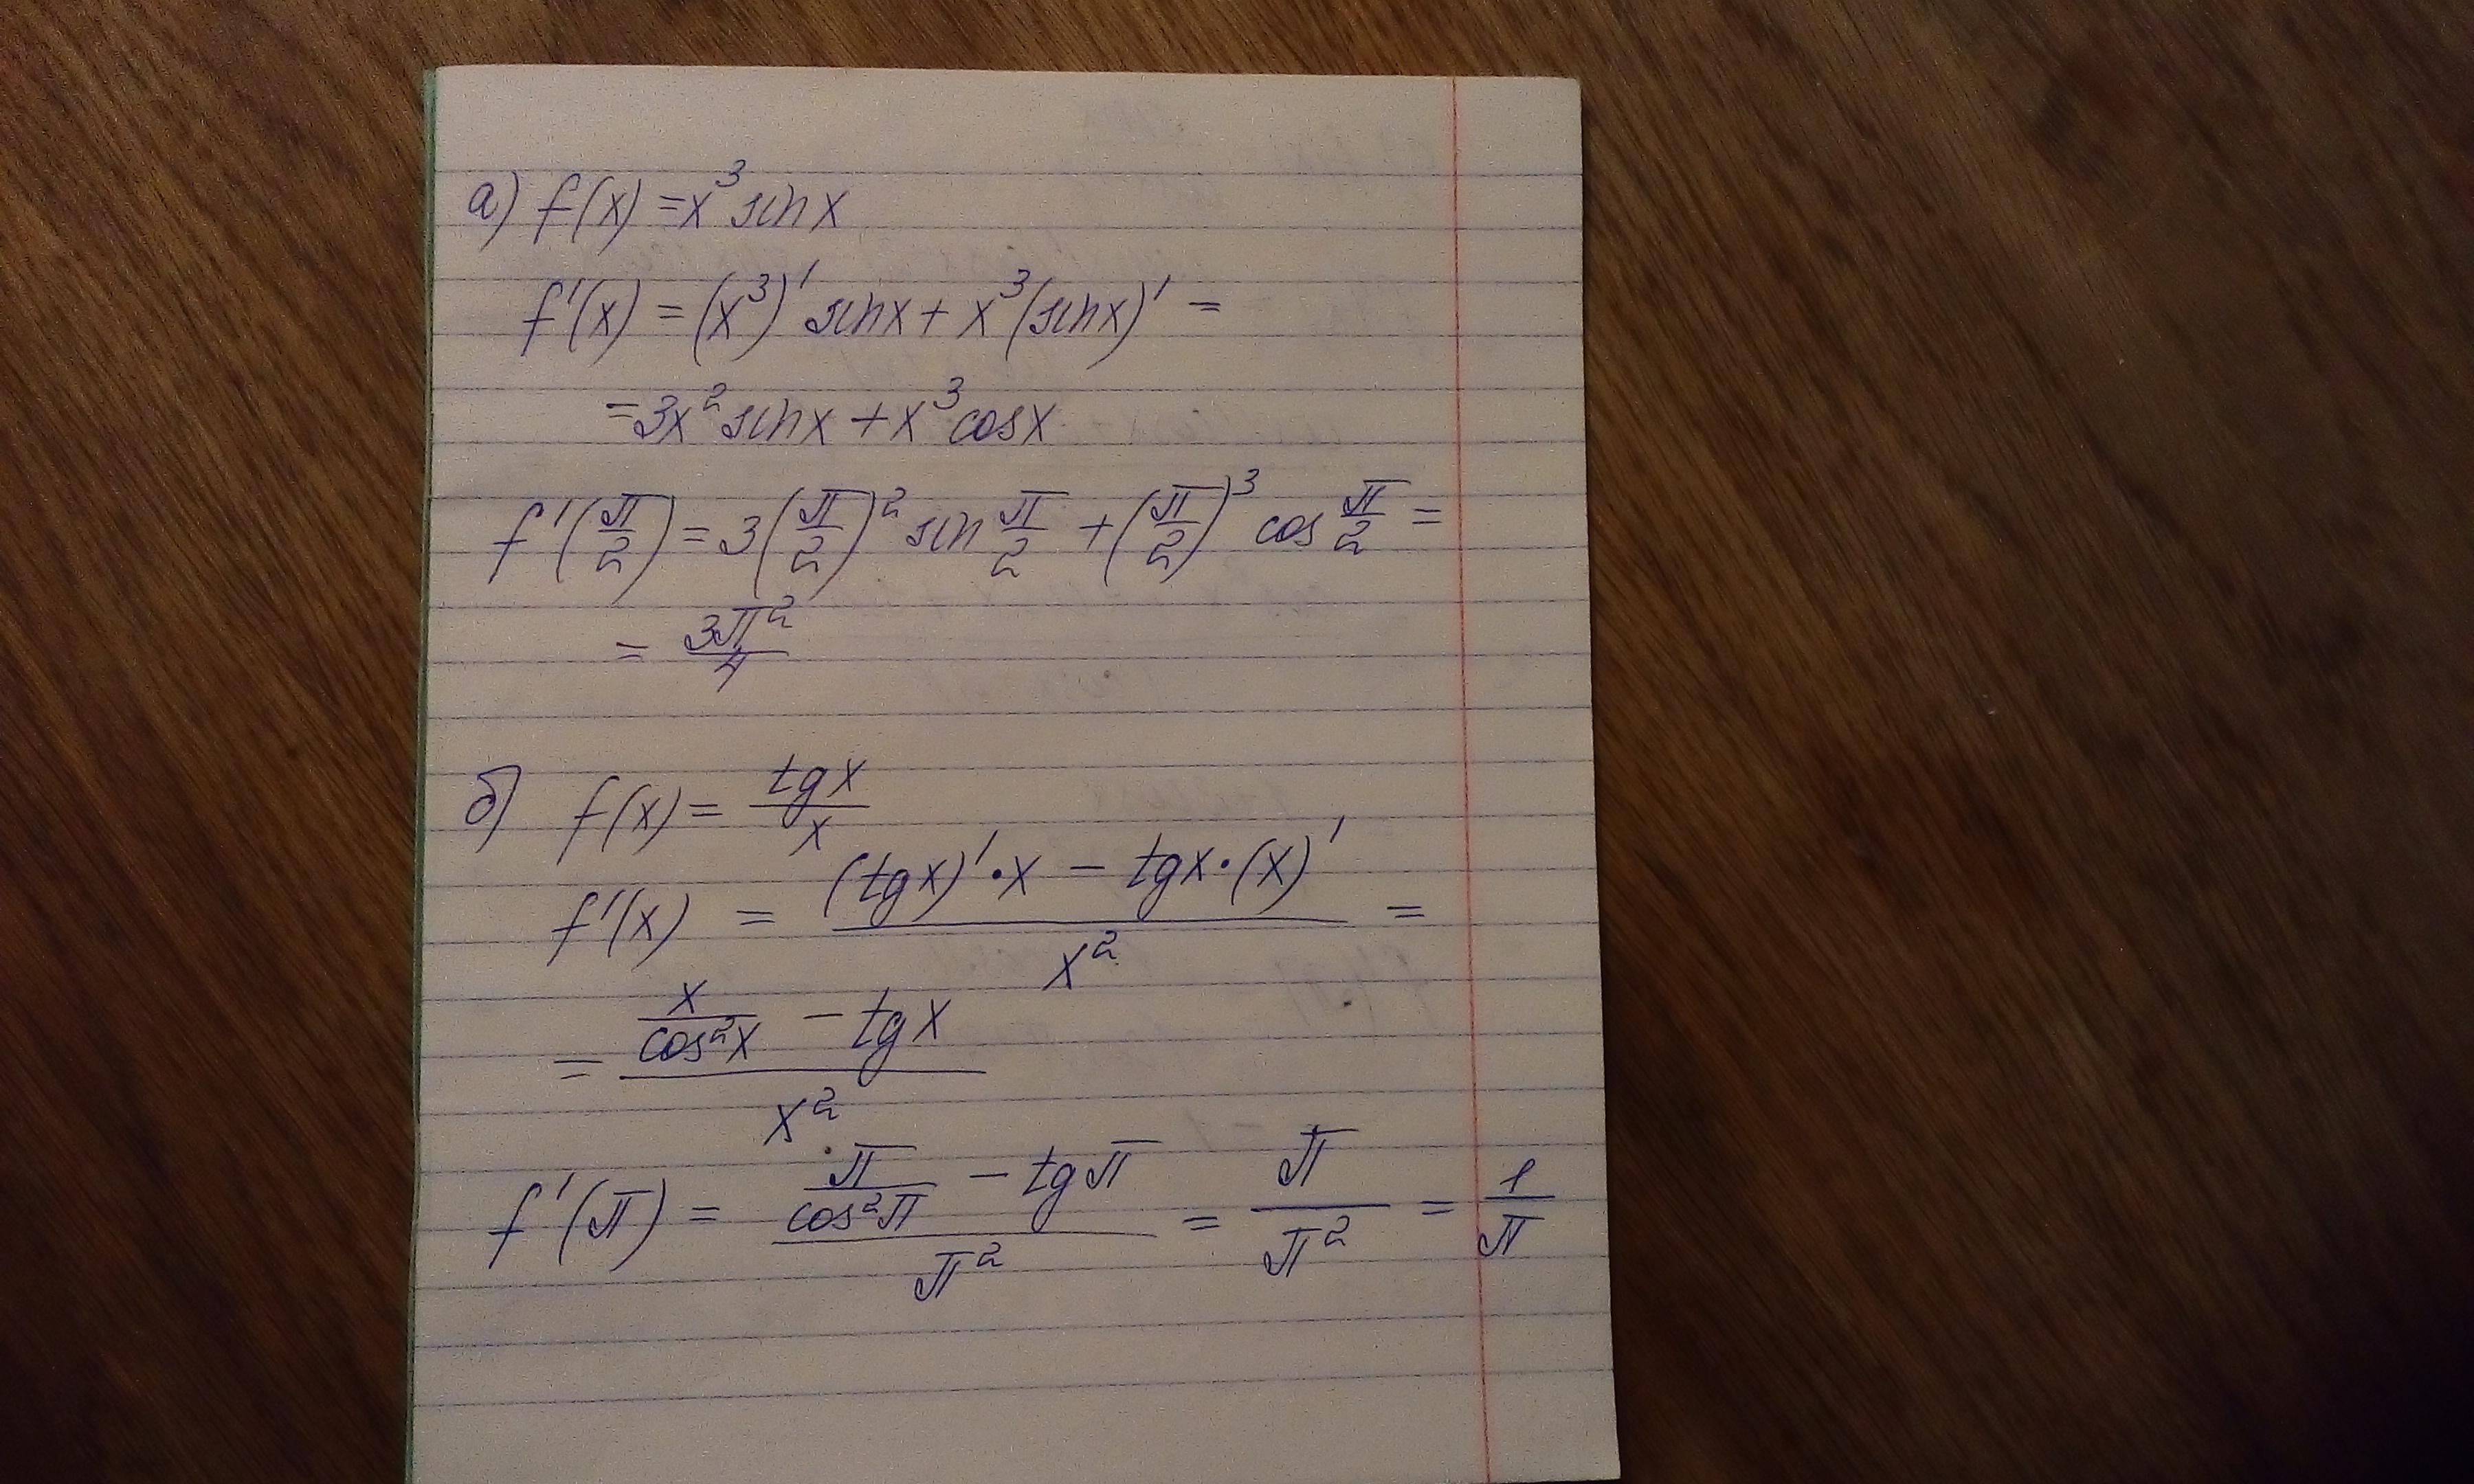 а) f(x) = x³ sin x
f'(x) = (x³)' sin x + x³ (sin x)' =
= 3x² sin x + x³ cos x
f'(π/2) = 3(π/2)² sin π/2 + (π/2)³ cos π/2 =
= 3π²/4
б) f(x) = tg x / x
f'(x) = ((tg x)' · x − tg x · (x)') / x² =
= (x/cos²x − tg x) / x²
f'(π) = (π/cos²π − tg π) / π² = π/π² = 1/π